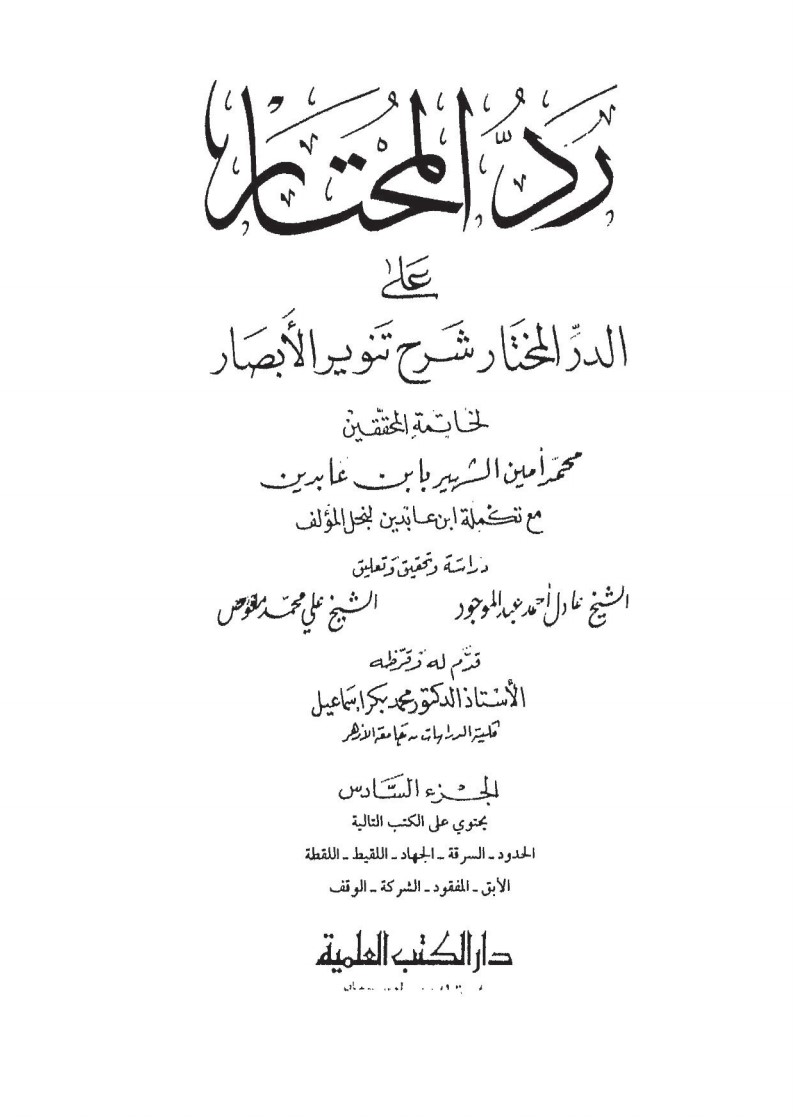 رَدُّ المُحْتَار
عَلىٰ
الدرِّ المختَار شَرح تَنوير الأَبصَار
لخاتمة المحقّقين
محمّد أمين الشهير بابن عابدين
مع تكملة ابن عابدين لنجل المؤلف
دراسَة وتحقيق وَتعليق
الشيخ عادل أحمد عبد الموجود الشيخ علي محمّد معوّض
قدَّم له وَقرّظه
الأسْتاذ الدكتور محمد بكر إسمَاعيل
كلية الدراسات ـ جامعة الأزهر
الجُزء السَّادس
يحتوي على الكتب التالية
الحدود ـ السرقة ـ الجهاد ـ اللقيط ـ اللقطة
الأبق ـ المفقود ـ الشركة ـ الوقف
دار الكتب العلمية